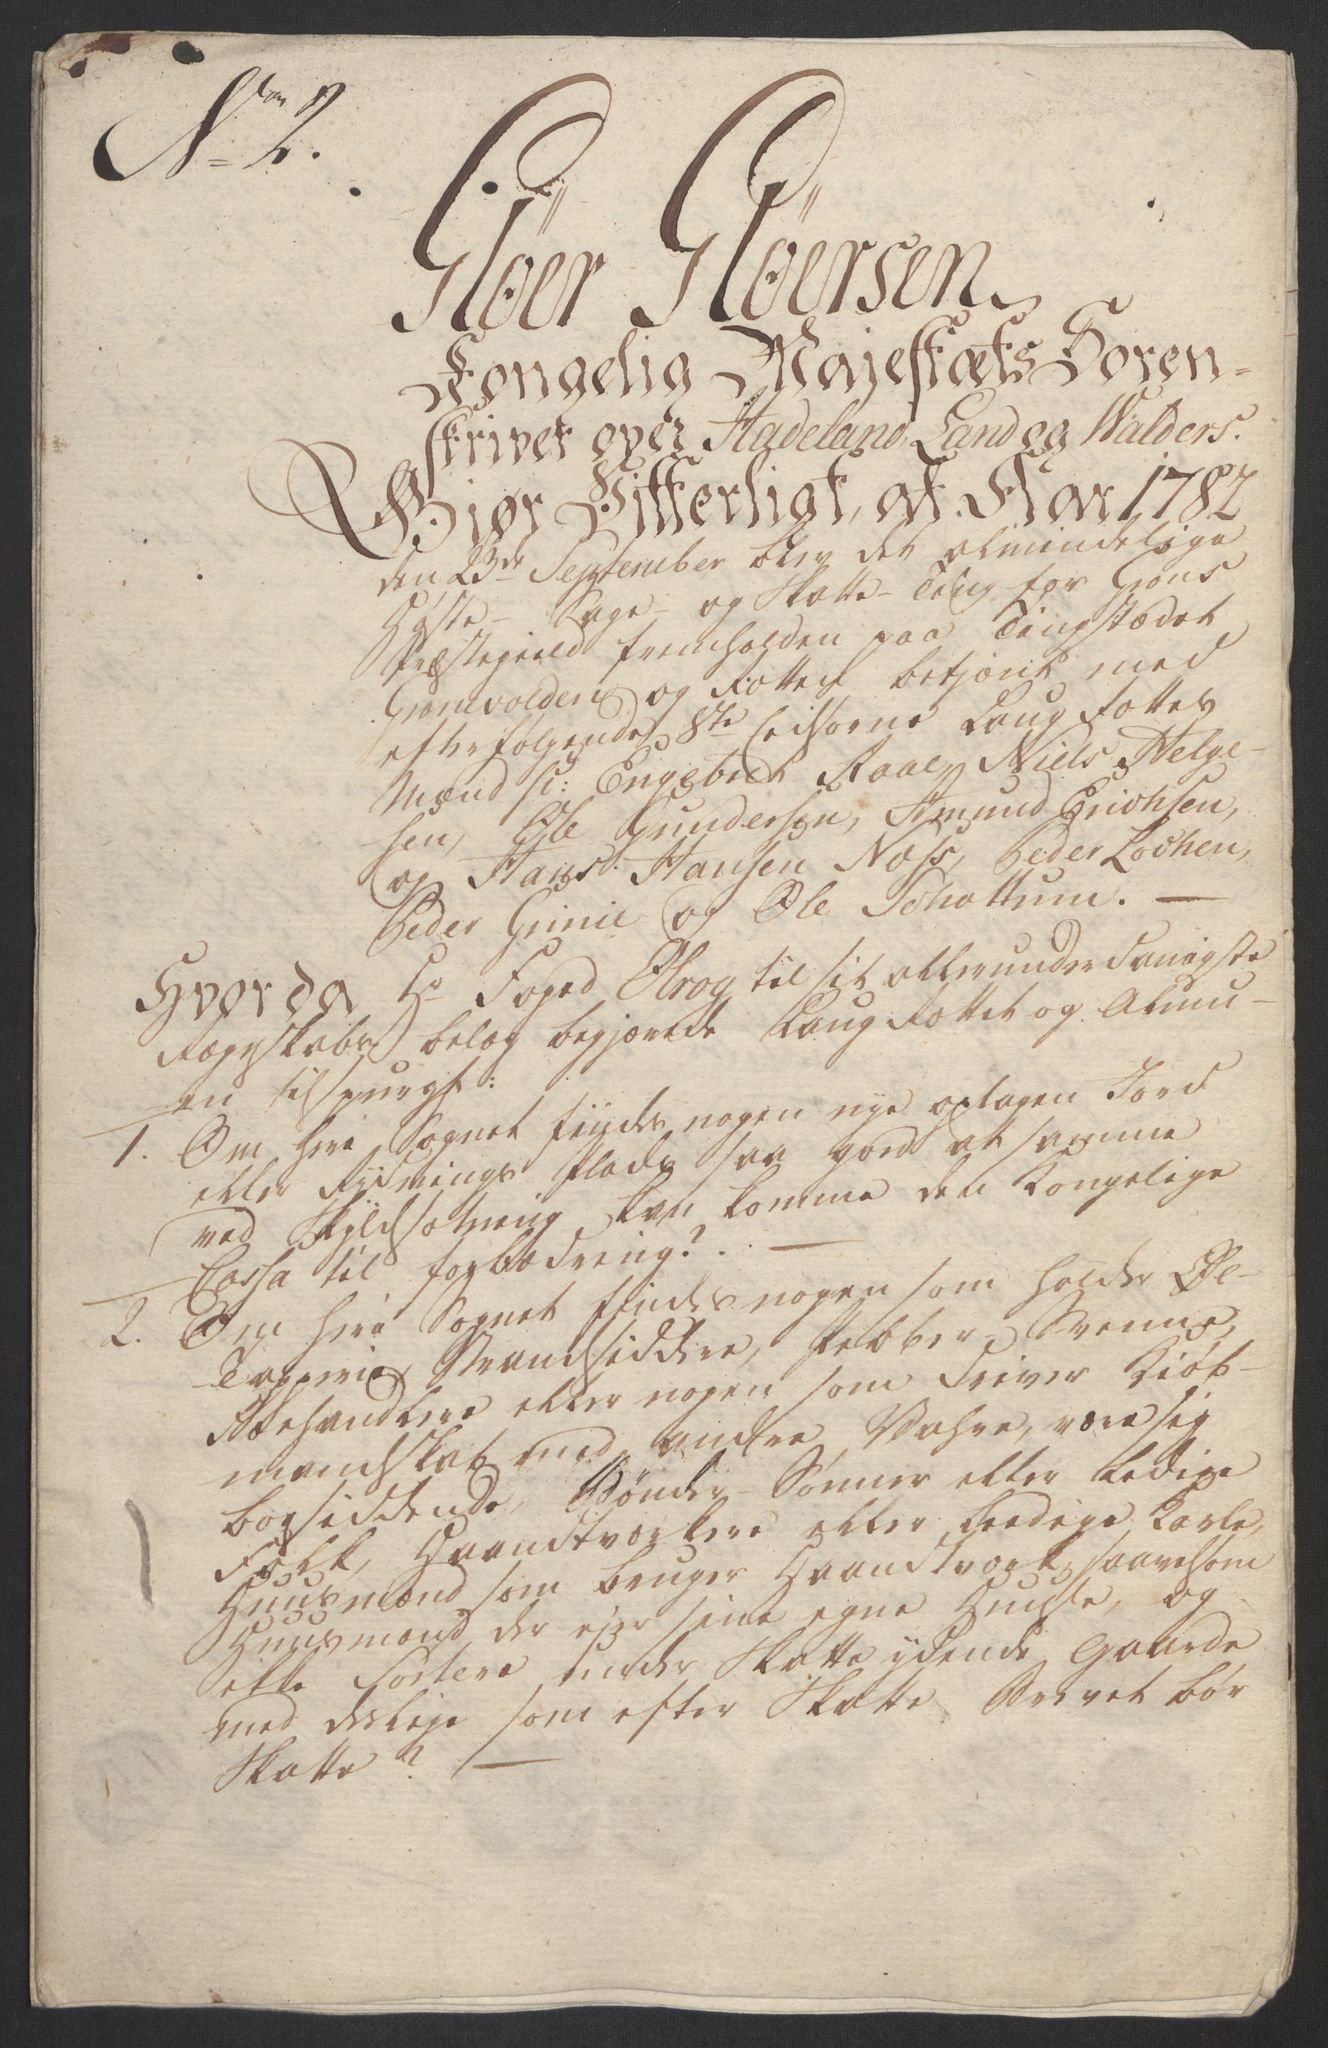 No 2.
Fløer Fløersen
Kongelig Majestæts Soren-
skriver over Hadeland, Land og Walders.
Giør Vitterligt, at Aar 1782
den 23de September blev det almindelige
Høste- Sage- og Skatte-Ting for Grans
Præstegield fremholden paa Tingstædet
Granvolden og Retten betjent med
efterfølgende 8te Eedsorne Laug Rettes
Mænd sc: Engebret Raae, Niels Helge-
sen, Ole Gundersen, Amund Erichsen,
og Hans Hansen Næss, Peder Lochen,
Peder Grinie og Ole Schattum. —
Hvorda Hr Foged Olrog til sit allerunderdanigste
Regnskabs belæg begjærede Laug Rettet og Almu-
en tilspurgt:
1. Om her i Sognet findes nogen nye optagen Jord
eller Rydnings Plads saa god at samme
ved Skyldsætning kan komme den Kongelige
Cassa til forbedring? —
2. Om her i Sognet findes nogen som holder Øl-
Tapperie, Strandsiddere, Pebber-Svenne,
Næhandlere eller nogen som driver Kiøb-
mandskab med andre Vahre, være sig
boesiddende, Bønder-Sønner eller ledige
Folk, Haandværkere eller leedige Karle,
Huusmænd som bruger Haandværk, saavelsom
Huusmænd der ejer sine egne Huuse, og
ikke sortere under Skatte ydende Gaarde
med deslige som efter Skatte Brevet bør
Skatte? —